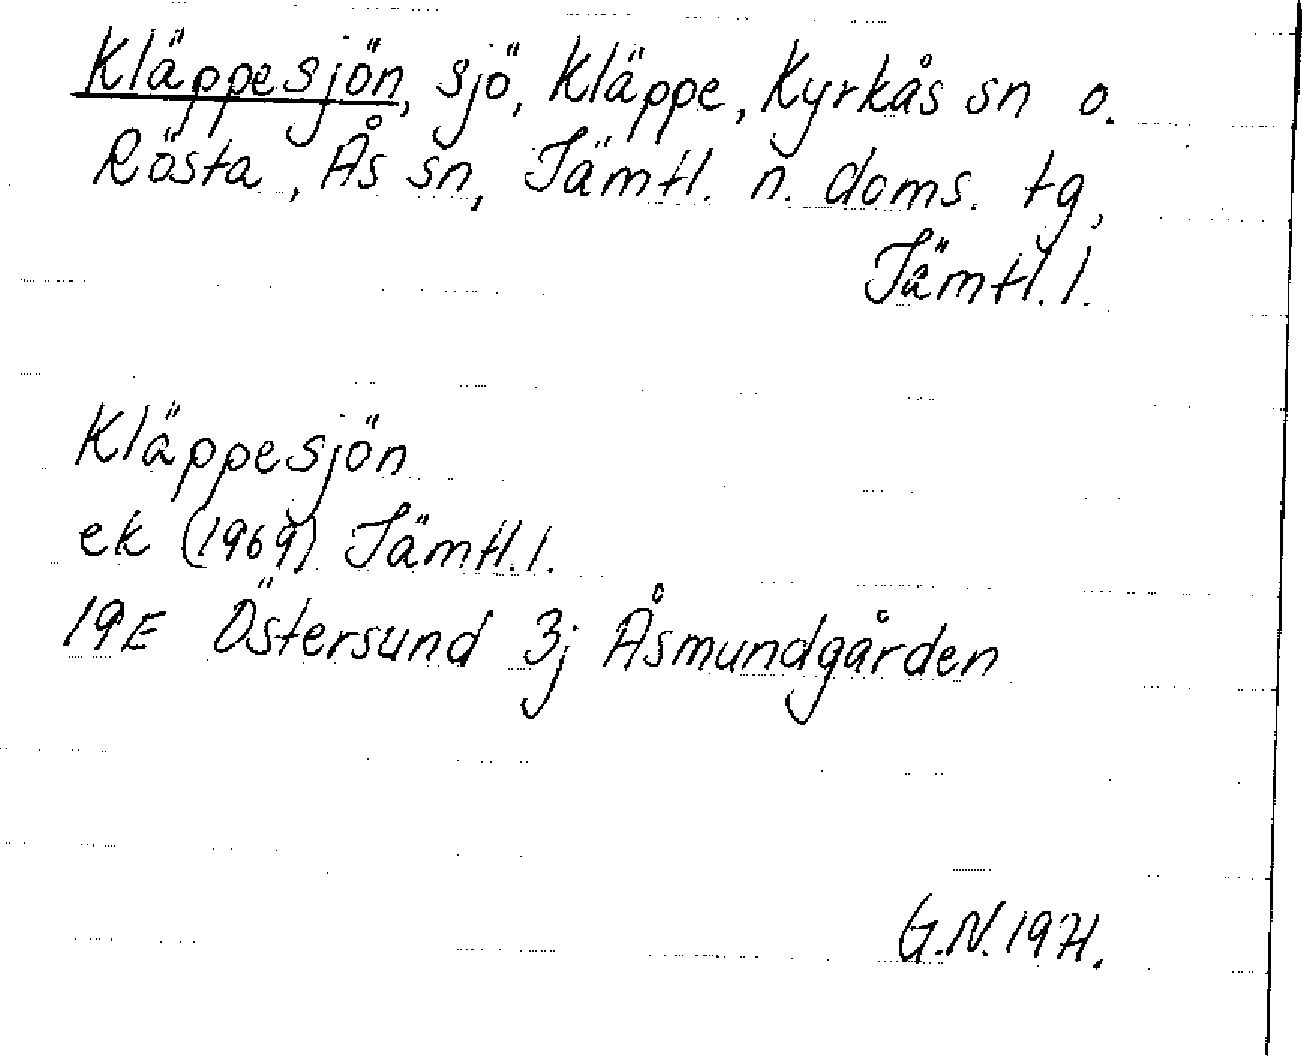 Kläppesjön, sjö, Kläppe, Kyrkås sn o.
Rösta, Ås sn, Jämtl. n. doms. tg,
Jämtl. l.
Kläppesjön
ek (1969) Jämtl. l.
19E Östersund 3j Åsmundgården
G.N. 1971.